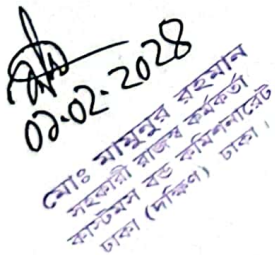 ০১.০২.২০২৪
মোঃ মামুনুর রহমান
সহকারী রাজস্ব কর্মকর্তা
কাস্টমস বন্ড কমিশনারেট
ঢাকা (দক্ষিণ) ঢাকা।